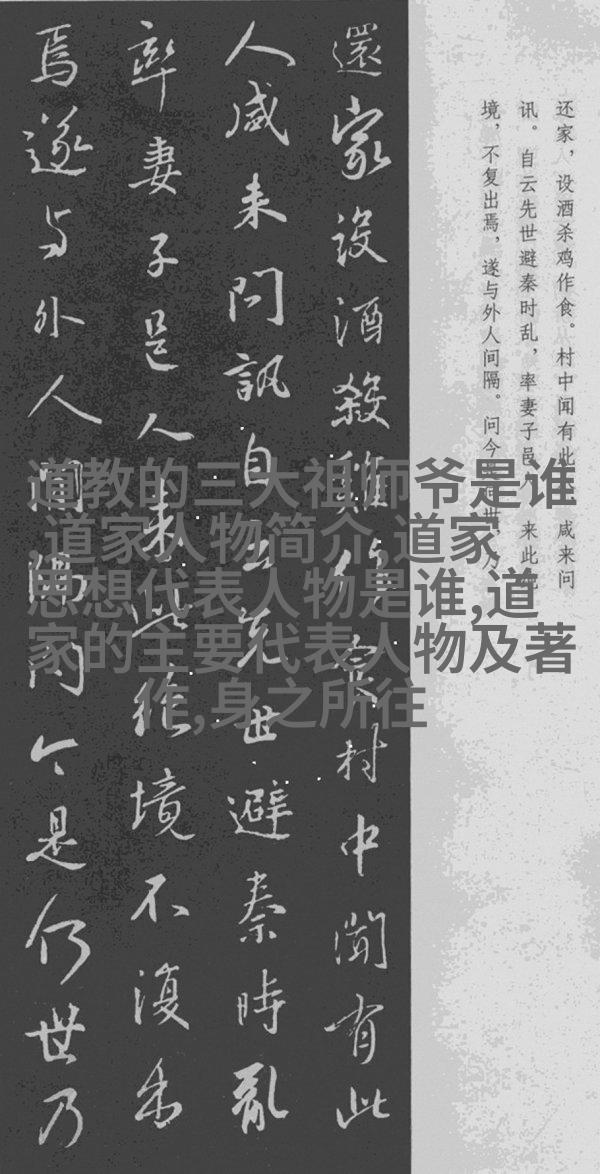 还家，设酒杀鸡作食。村中闻有此 咸来问
讯。自云先世避秦时乱，率妻子邑 来此绝
境，不复出焉，遂与外人间隔。问今 世，乃
還家設酒殺雞作食村中聞有此
人咸来問訊自云先世避秦時亂
率妻子邑人来此絶境不復出
焉遂与外人間隔問今是何世乃
道教的三大祖师爷是谁
,道家人物简介,道家
思想代表人物是谁,道
家的主要代表人物及著
作,身之所往